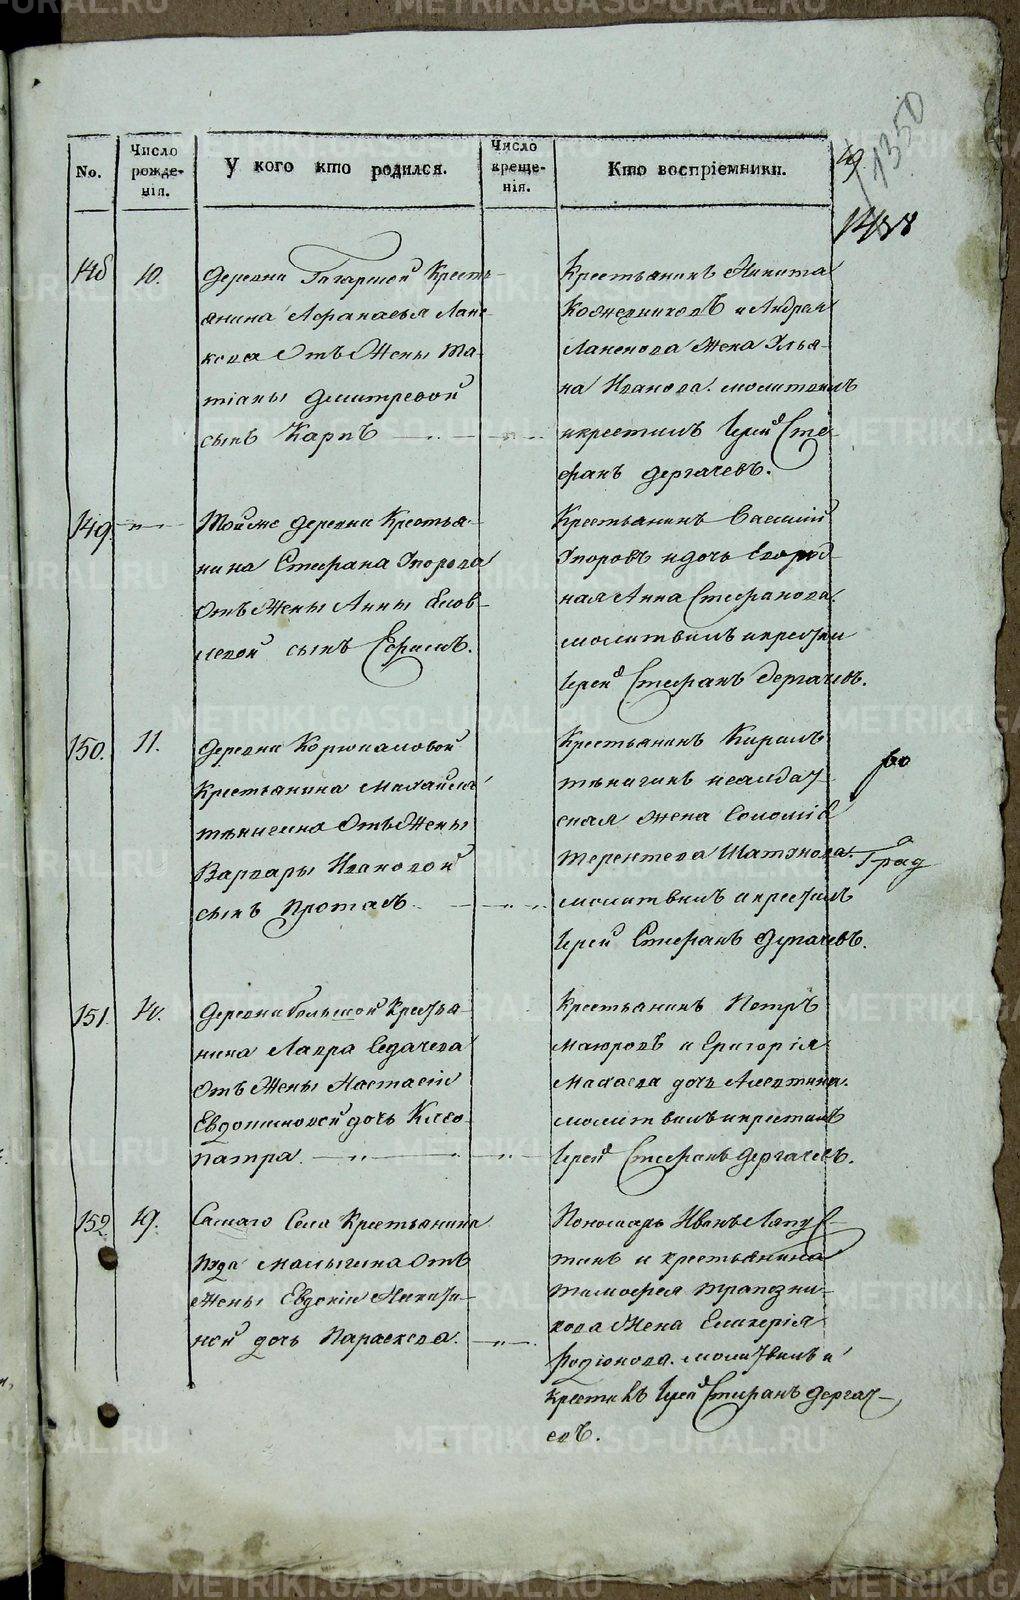 1350
49
1488
No.
Число рожде-нія.
У кого кто родился.
Число креще-нія.
Кто воспріемники.
148
10.
Деревни Гагарской Кресть-
янина Афанасья Лапе-
нкова Отъ Жены Та-
тіаны Димитревой
сынъ Карпъ — „ — „ —
Крестьянинъ Никита
Кожевниковъ и Андрея
Лапенкова Жена Улья-
на Иванова. молитвилъ
и крестилъ Іерей Сте-
фанъ Дергачевъ.
149 — „ —
Тойже деревни Крестья-
нина Стефана Упорова
Отъ Жены Анны Яков-
левой сынъ Ефимъ.
Крестьянинъ Василий
Упоровъ и дочь Егород-
ная Анна Стефанова.
молитвилъ и крестил
Іерей Стефанъ Дергачевъ.
150.
11.
Деревни Корюкаловой
Крестьянина Михайла
тѣнигина Отъ Жены
Варвары Ивановой
сынъ Протасъ — „ —
Крестьянинъ Кирилъ
тѣнигинъ и салдат-
ская жена Соломія
Терентева Шатунова.
молитвилъ и крестилъ
Іерей Стефанъ Дергачевъ.
Град
151.
14.
Деревни большой Крестья-
нина Лавра Седачева
Отъ Жены Настасіи
Евдокимовой дочь Клео-
патра. — „ — „ —
Крестьянинъ Петръ
Маюровъ и Григорія
Макаева дочь Алевтина.
молитвилъ и крестилъ
Іерей Стефанъ Дергачевъ.
152
19.
Самаго Села Крестьянина
Іуда Малыгина Отъ
Жены Евдокіи Никити-
ной дочь Параскева. — „ —
Пономарь Иванъ Лапу-
тинъ и крестьянина
Тимофея Трапезни-
кова Жена Гликерія
Родіонова. молитвилъ и
крестилъ Іерей Стефанъ Дергач-
евъ.
METRIKI.GASO-URAL.RU